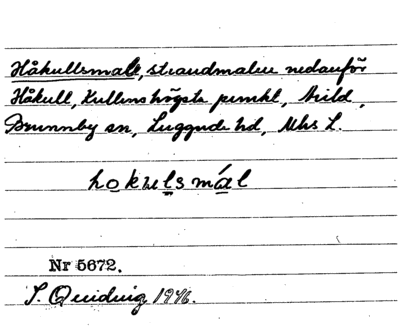 Håkullsmall, strandmalen nedanför
Håkull, Kullens högsta punkt, Arild,
Brunnby sn, Luggude hd, Mhs L.
hokulsmál
Nr 5672.
1946.